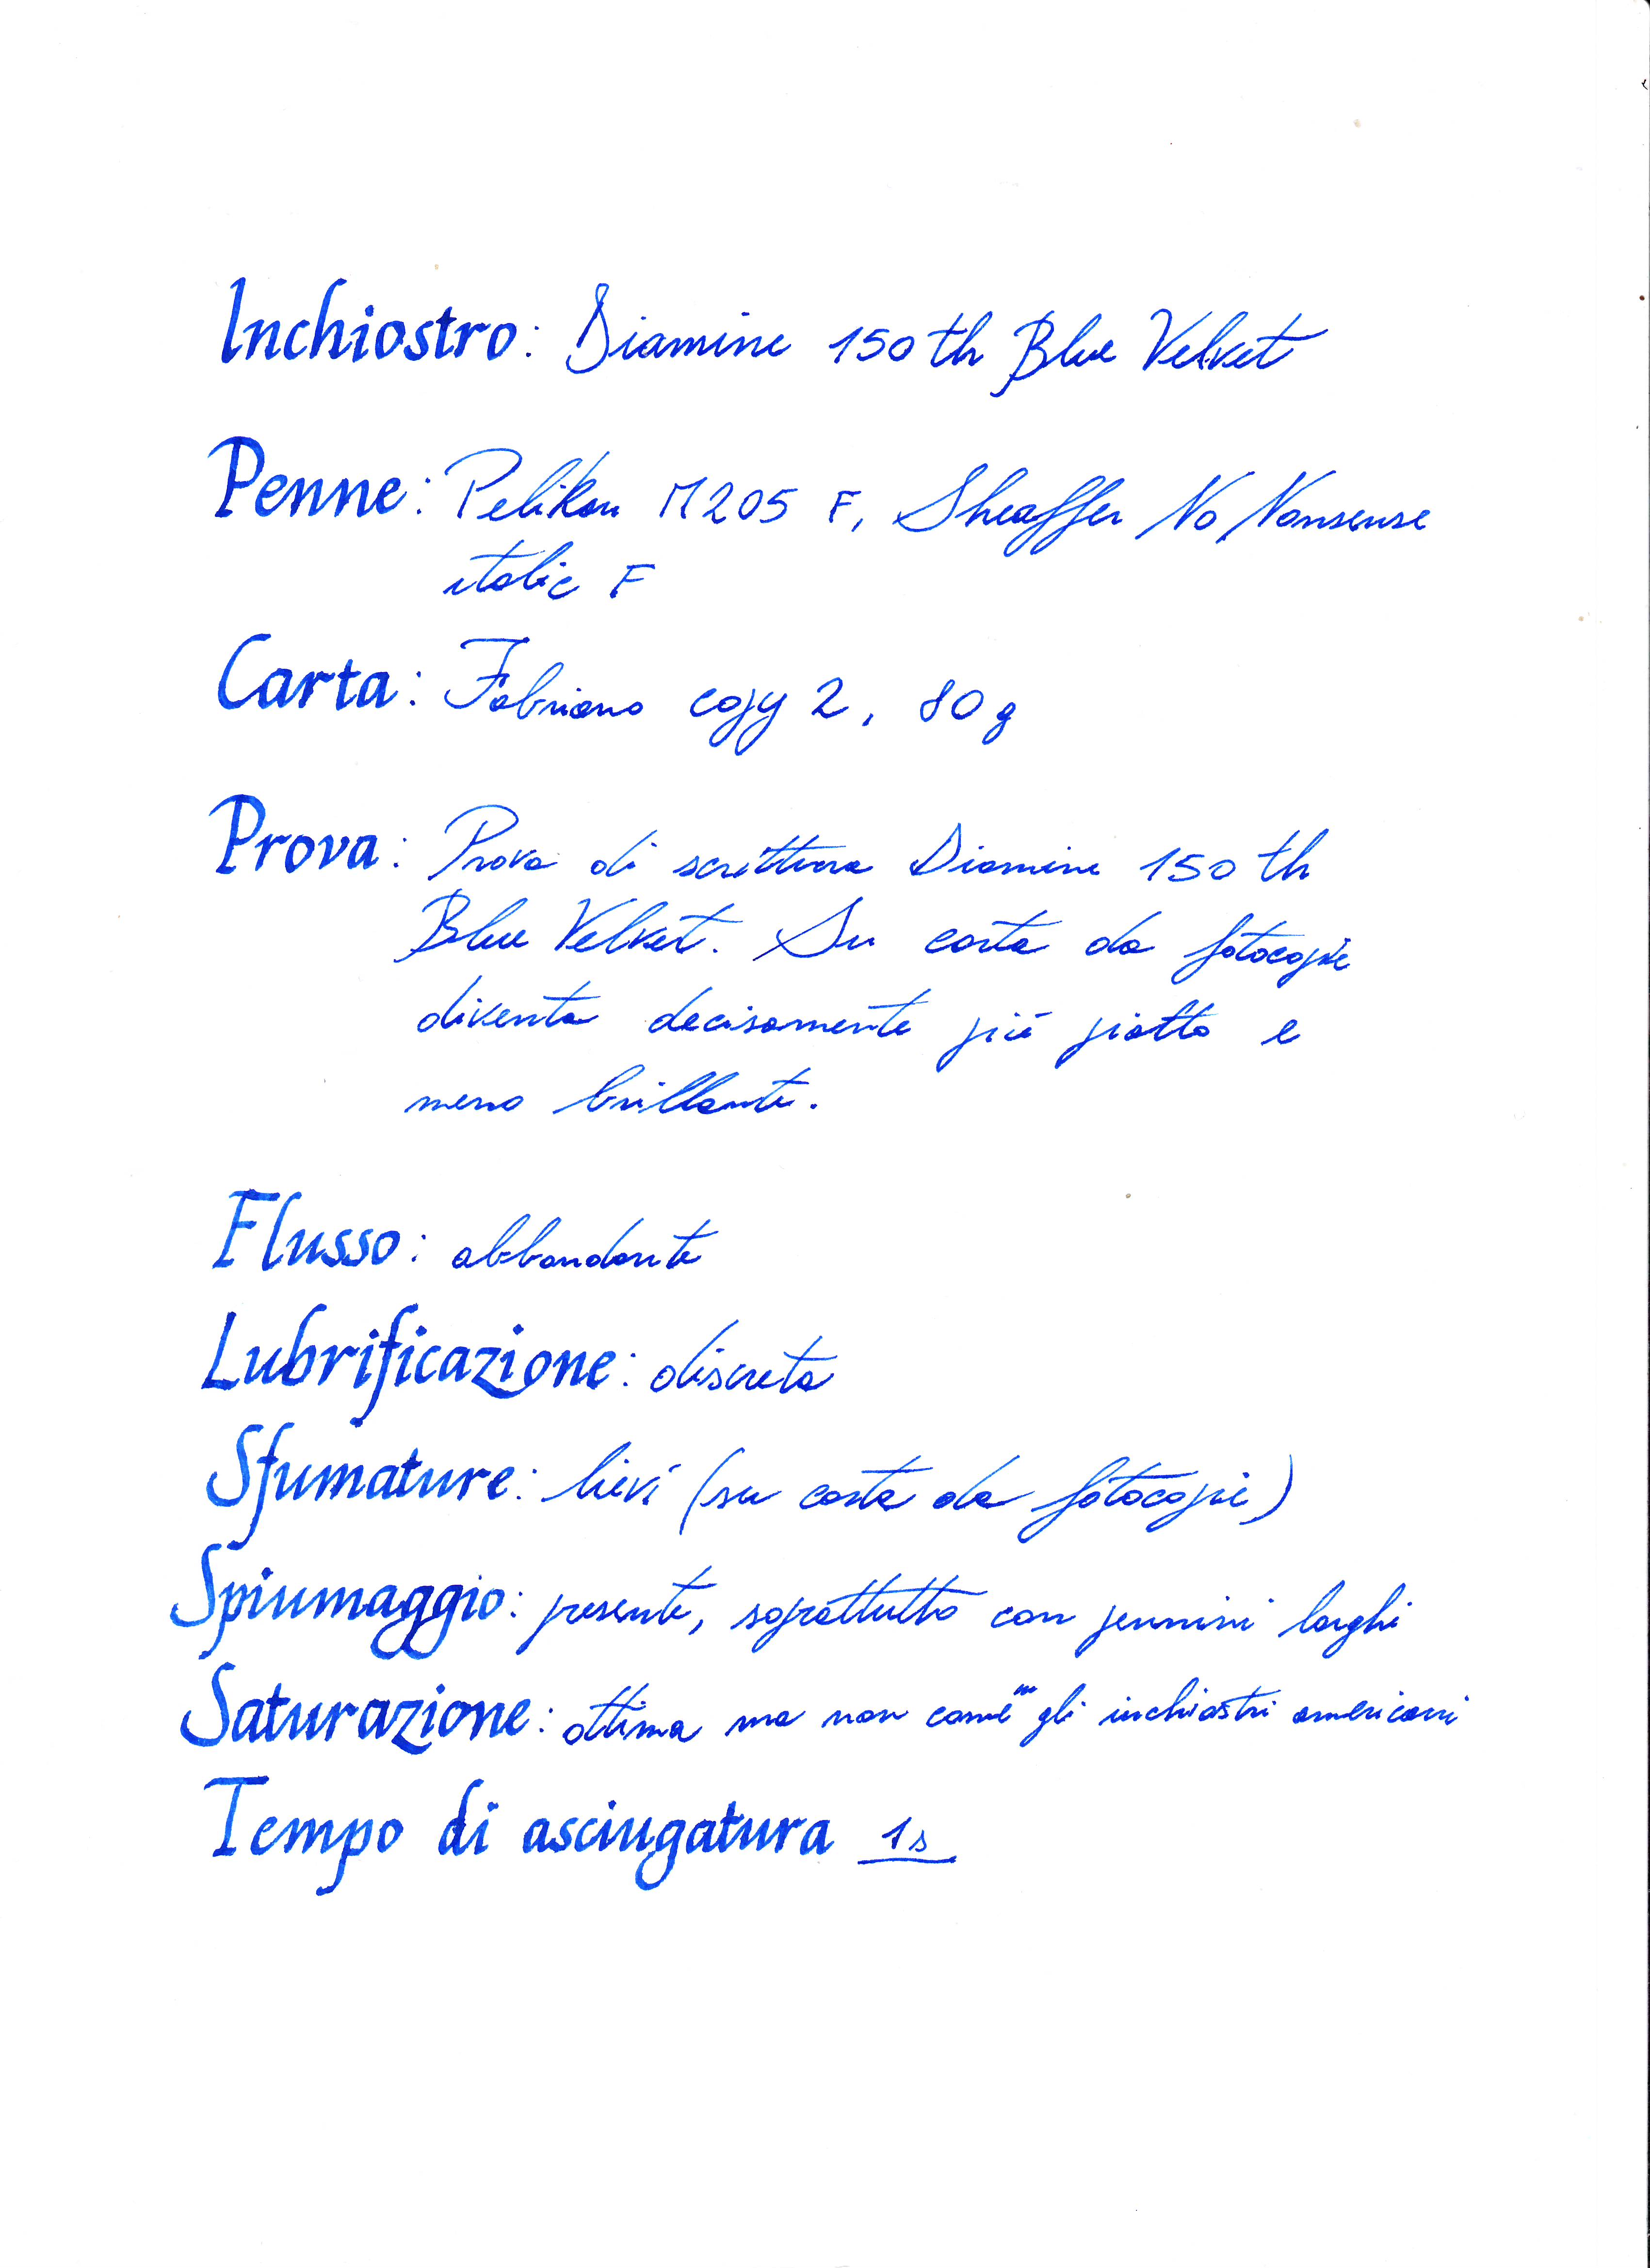 Inchiostro: Diamine 150th Blue Velvet
Penne: Pelikan M205 F, Sheaffer No Nonsense
italic F
Carta: Fabriano copy 2, 80 g
Prova: Prova di scrittura Diamine 150th
Blue Velvet. Su carta da fotocopie
diventa decisamente più piatto e
meno brillante.
Flusso: abbondante
Lubrificazione: discreta
Sfumature: lievi (su carta da fotocopie)
Spiumaggio: presente, soprattutto con pennini larghi
Saturazione: ottima ma non come gli inchiostri americani
Tempo di asciugatura 1s